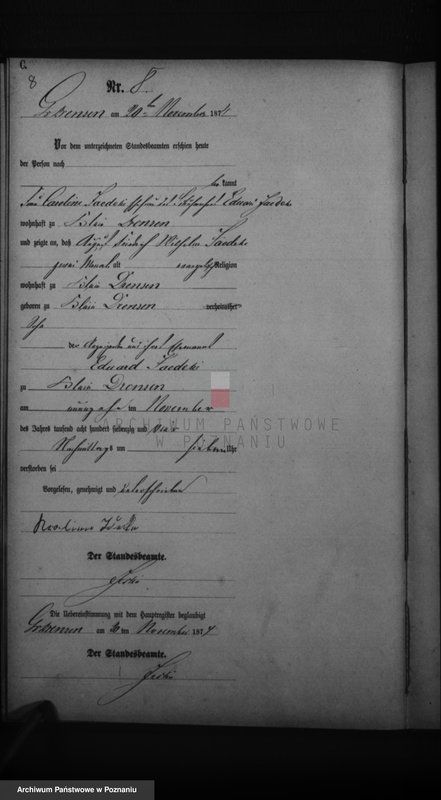 C.
8
Nr. 8.
Gr. Drensen am 20ten November 1874
Vor dem unterzeichneten Standesbeamten erschien heute
der Person nach
bekannt
Frau Caroline Jaedeke Eduard Jaedeke
wohnhaft zu Klein Drensen
und zeigte an, daß August Friedrich Wilhelm Jaedeke
zwei Monat alt evangelischer Religion
wohnhaft zu Klein Drensen
geboren zu Klein Drensen verheirathet
Sohn
der Anzeigenden und ihres Ehemann
Eduard Jaedeke
zu Klein Drensen
am ten November
des Jahres tausend acht hundert siebenzig und vier
Nachmittags um sieben Uhr
verstorben sei
Vorgelesen, genehmigt und unterschrieben
Der Standesbeamte.
Die Uebereinstimmung mit dem Hauptregister beglaubigt
Gr. Drensen am 20 ten November 1874
Der Standesbeamte.
ARCHIWUM PAŃSTWOWE
W POZNANIU
Archiwum Państwowe w Poznaniu